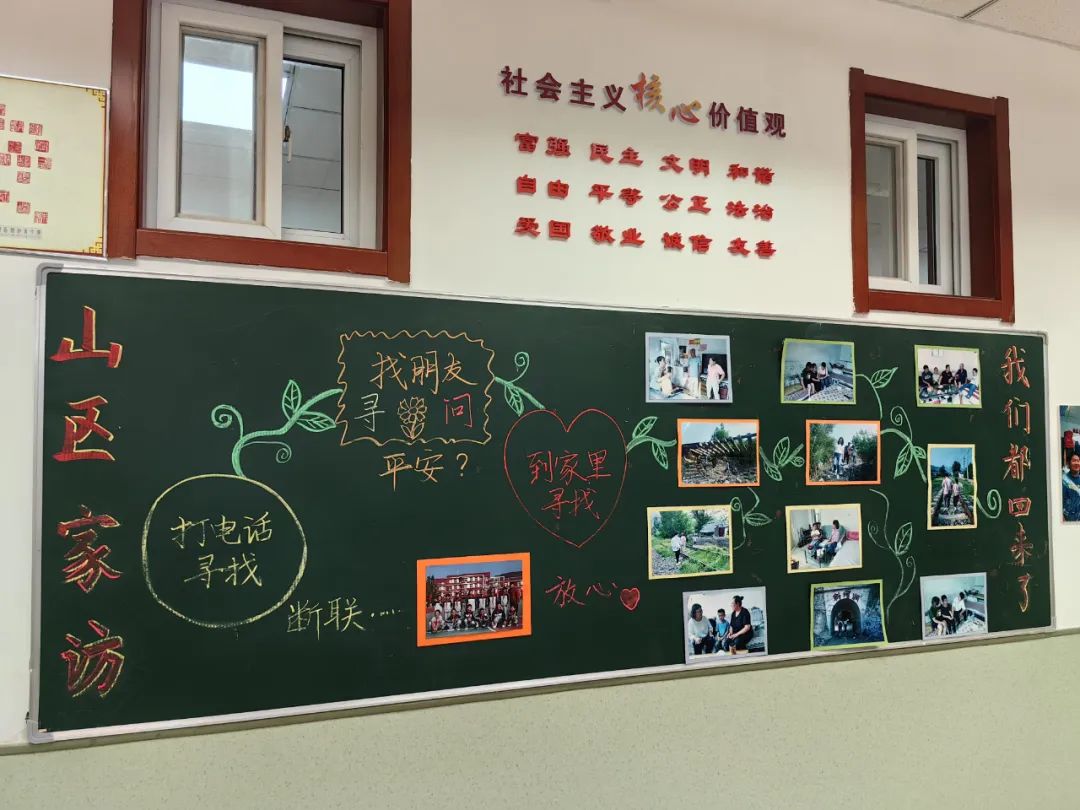 社会主义核心价值观
富强 民主 文明 和谐
自由 平等 公正 法治
爱国 敬业 诚信 友善
山区家访
打电话
寻找
断联……
找朋友
寻问
平安？
到家里
寻找
放心
我们都回来了